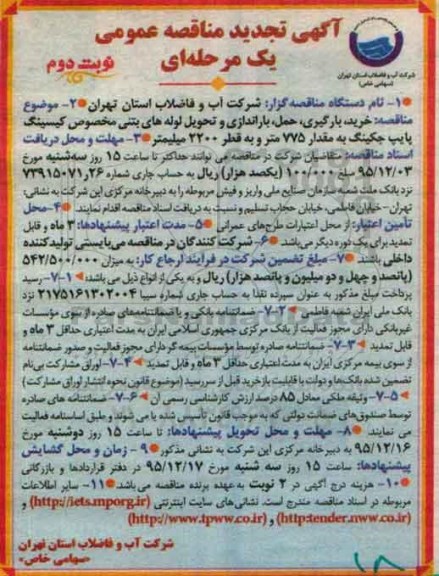 آگهی تجدید مناقصه عمومی
یک مرحله‌ای
نوبت دوم
شرکت آب و فاضلاب استان تهران
(سهامی خاص)
۱- نام دستگاه مناقصه گزار: شرکت آب و فاضلاب استان تهران ۲- موضوع
مناقصه: خرید، بارگیری، حمل، باراندازی و تحویل لوله های بتنی مخصوص کیسینگ
پایپ جکینگ به مقدار ۷۷۵ متر و به قطر ۲۲۰۰ میلیمتر ۳- مهلت و محل دریافت
اسناد مناقصه: متقاضیان شرکت در مناقصه می توانند حداکثر تا ساعت ۱۵ روز سه‌شنبه مورخ
۹۵/۱۲/۰۳ مبلغ ۱۰۰/۰۰۰ (یکصد هزار) ریال به حساب جاری شماره ۷۳۹۱۵۰۷۱٫۲۶
نزد بانک ملت شعبه سازمان صنایع ملی واریز و فیش مربوطه را به دبیرخانه مرکزی این شرکت به نشانی:
تهران - خیابان فاطمی، خیابان حجاب تسلیم و نسبت به دریافت اسناد مناقصه اقدام نمایند. ۴- محل
تأمین اعتبار: از محل اعتبارات طرح‌های عمرانی ۵- مدت اعتبار پیشنهادها: ۳ ماه و قابل
تمدید برای یک دوره دیگر می‌باشد. ۶- شرکت کنندگان در مناقصه می‌بایستی تولیدکننده
داخلی باشند. ۷- مبلغ تضمین شرکت در فرآیند ارجاع کار: به میزان ۵۴۲/۵۰۰/۰۰۰
(پانصد و چهل و دو میلیون و پانصد هزار) ریال و به یکی از انواع ذیل می باشد: ۱-۷- رسید
پرداخت مبلغ مذکور به عنوان سپرده نقداً به حساب جاری شماره سیبا ۲۱۷۵۱۶۱۳۰۲۰۰۴ نزد
بانک ملی ایران شعبه فاطمی ۲-۷- ضمانتنامه بانکی و یا ضمانتنامه‌های صادره از سوی مؤسسات
غیربانکی دارای مجوز فعالیت از بانک مرکزی جمهوری اسلامی ایران به مدت اعتباری حداقل ۳ ماه و
قابل تمدید ۳-۷- ضمانتنامه صادره توسط مؤسسات بیمه گر دارای مجوز فعالیت و صدور ضمانتنامه
از سوی بیمه مرکزی ایران به مدت اعتباری حداقل ۳ ماه و قابل تمدید ۴-۷- اوراق مشارکت بی‌نام
تضمین شده بانک‌ها و دولت با قابلیت بازخرید قبل از سررسید (موضوع قانون نحوه انتشار اوراق مشارکت)
۵-۷- وثیقه ملکی معادل ۸۵ درصد ارزش کارشناسی رسمی آن ۶-۷- ضمانتنامه های صادره
توسط صندوق‌های ضمانت دولتی که به موجب قانون تأسیس شده یا می شوند و طبق اساسنامه فعالیت
می نمایند. ۸- مهلت و محل تحویل پیشنهادها: تا ساعت ۱۵ روز دوشنبه مورخ
۹۵/۱۲/۱۶ به دبیرخانه مرکزی این شرکت به نشانی مذکور ۹- زمان و محل گشایش
پیشنهادها: ساعت ۱۵ روز سه شنبه مورخ ۹۵/۱۲/۱۷ در دفتر قراردادها و بازرگانی
۱۰- هزینه درج آگهی در ۲ نوبت به عهده برنده مناقصه می‌باشد. ۱۱- سایر اطلاعات
مربوطه در اسناد مناقصه مندرج است. نشانی‌های سایت اینترنتی (http://iets.mporg.ir) و
(http://www.tpww.co.ir) و (http:tender.nww.co.ir)
شرکت آب و فاضلاب استان تهران
«سهامی خاص»
۱۸